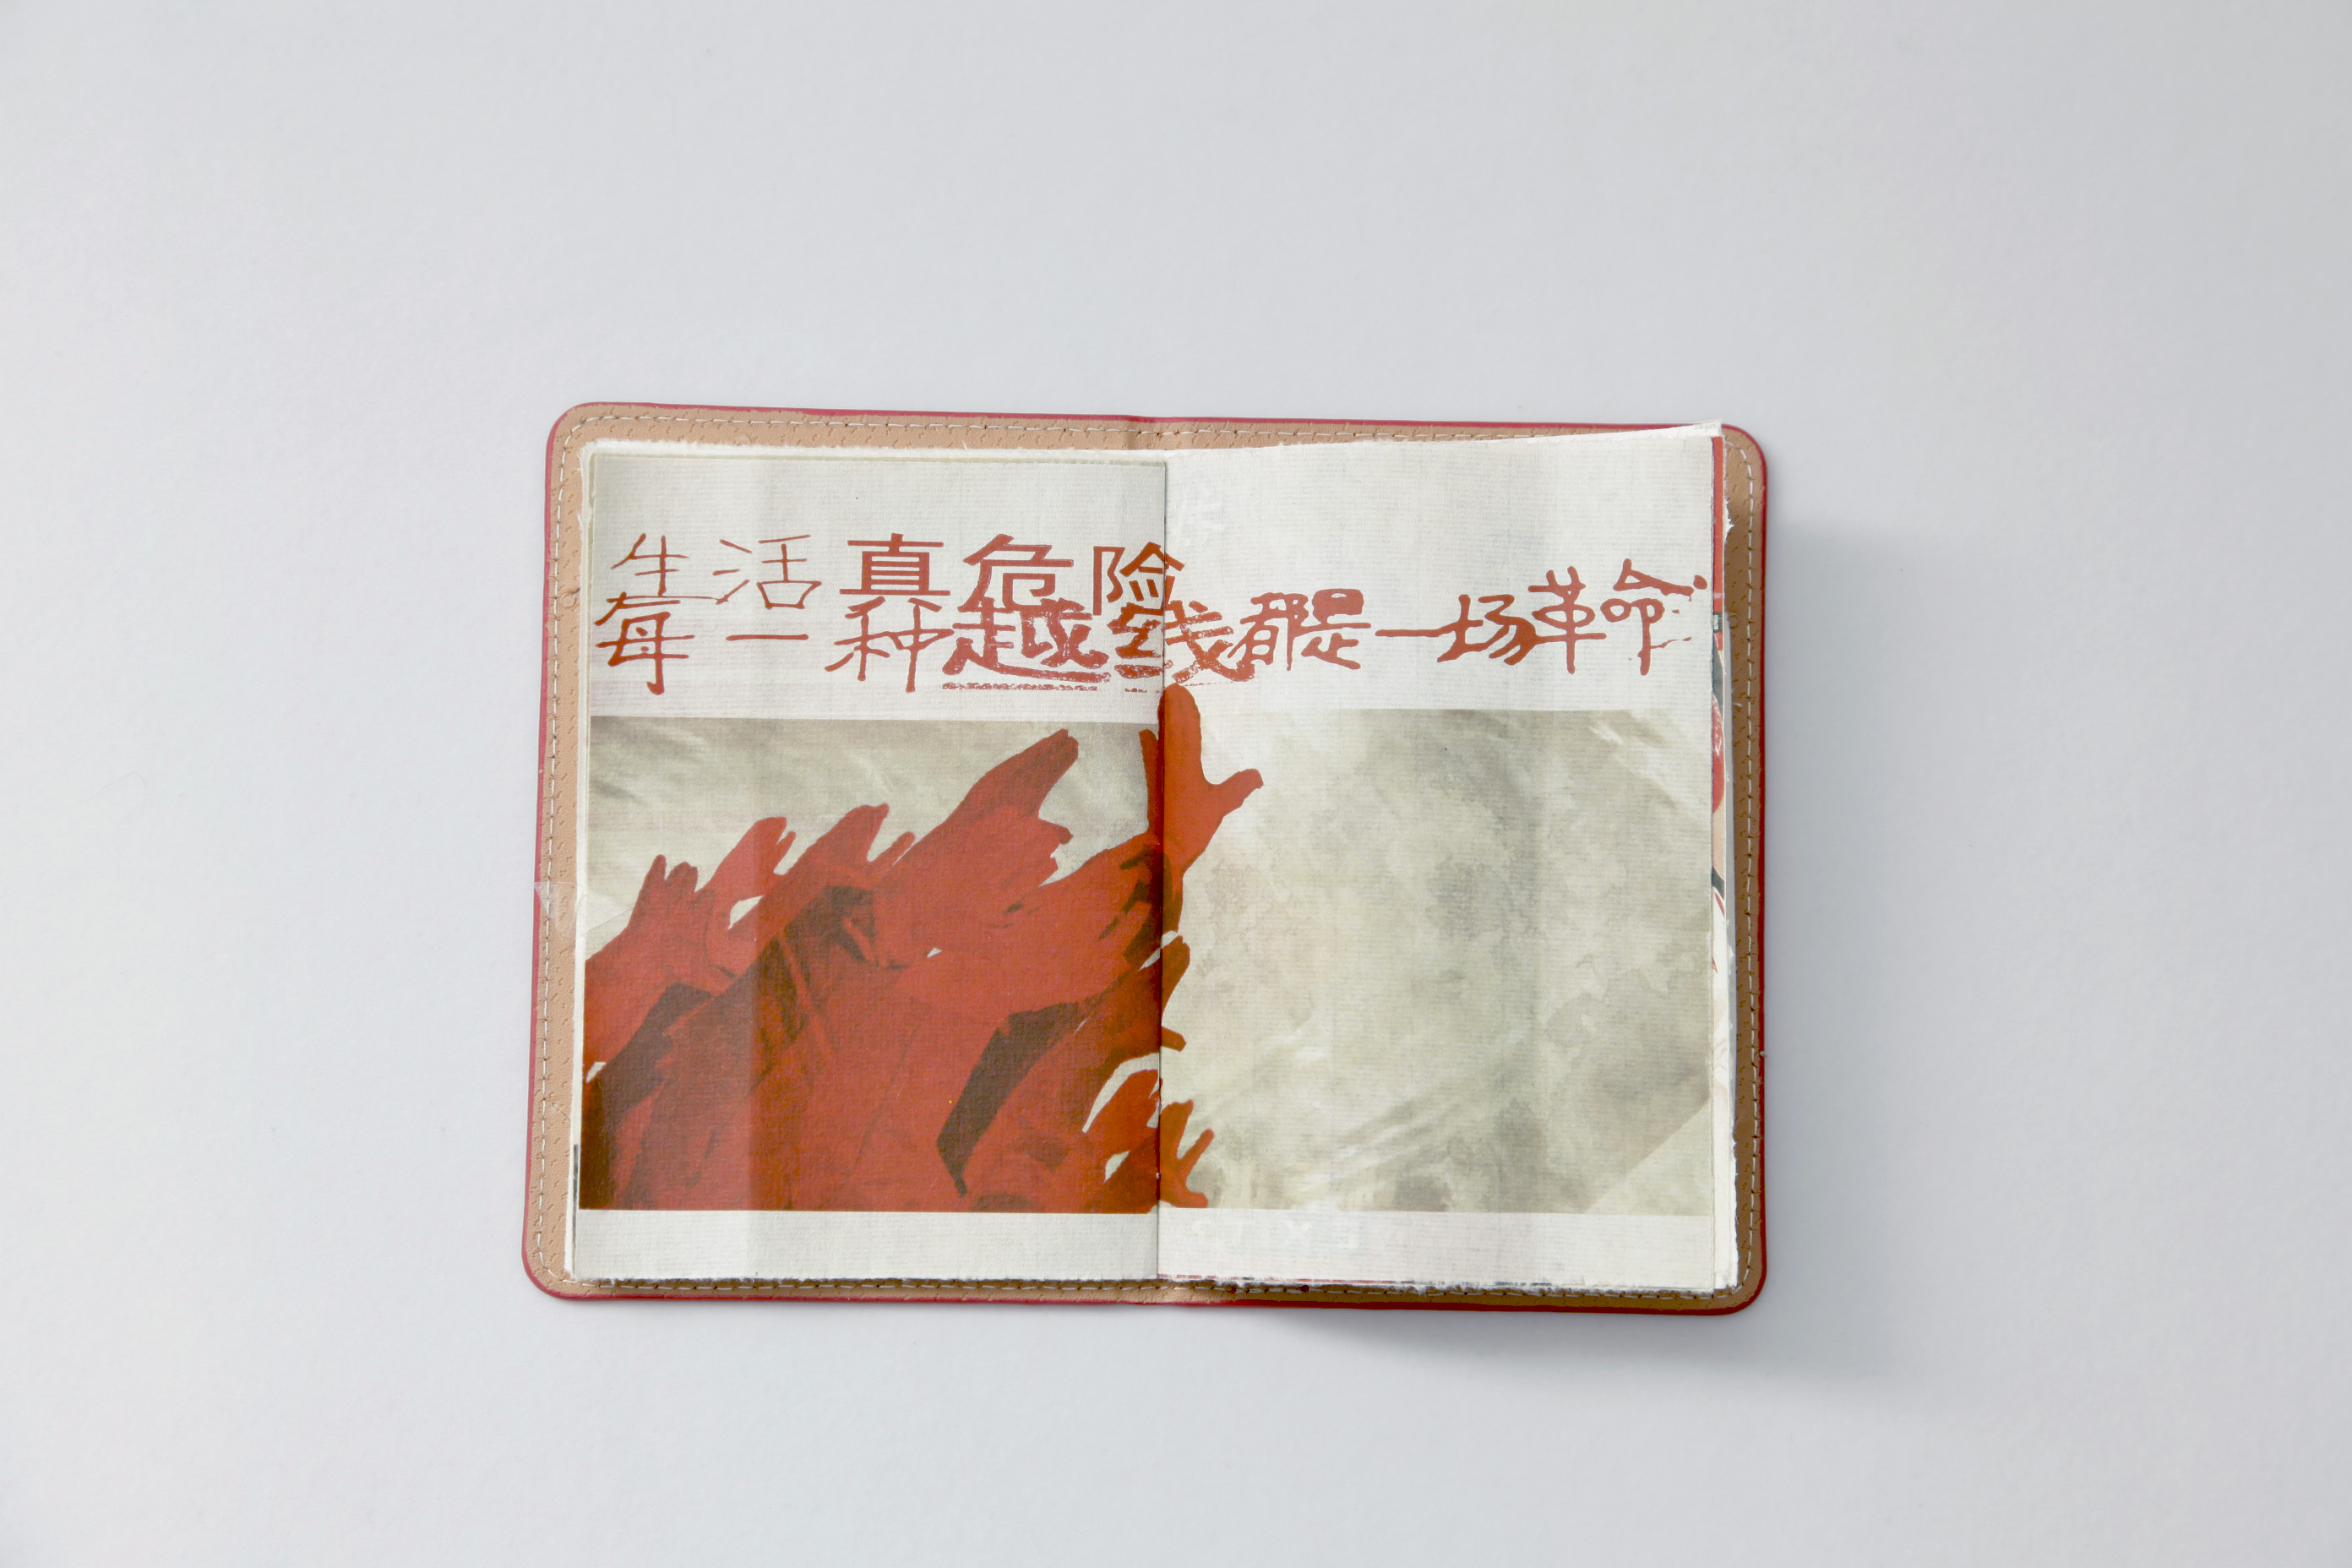 生活真危险
每一种越线都是一场革命